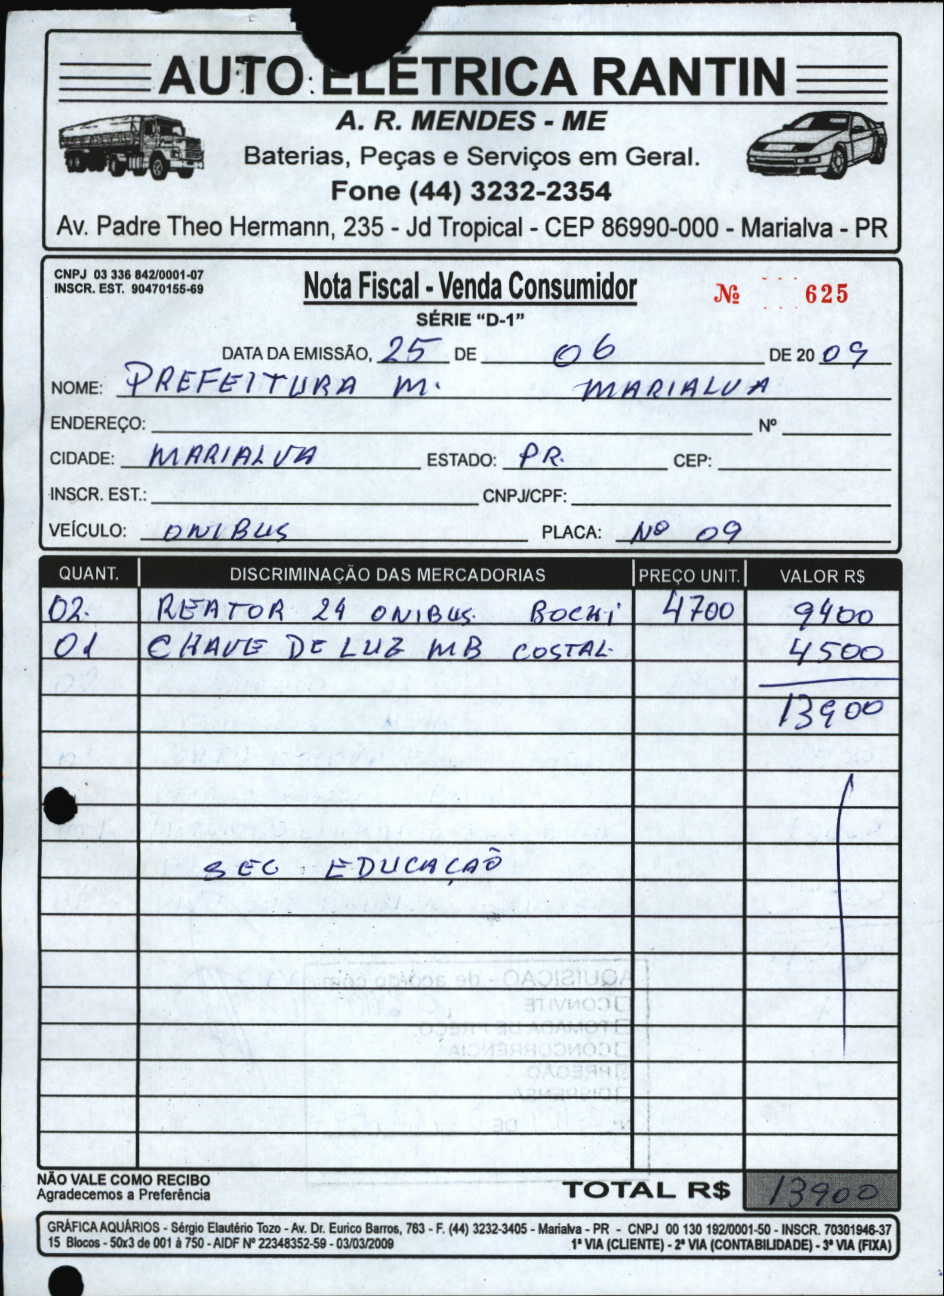 AUTO ELÉTRICA RANTIN
A. R. MENDES - ME
Baterias, Peças e Serviços em Geral.
Fone (44) 3232-2354
Av. Padre Theo Hermann, 235 - Jd Tropical - CEP 86990-000 - Marialva - PR
CNPJ 03 336 842/0001-07
INSCR. EST. 90470155-69
Nota Fiscal - Venda Consumidor
Nº 625
SÉRIE "D-1"
DATA DA EMISSÃO, 25 DE 06 DE 2009
NOME: PREFEITURA M. MARIALVA
ENDEREÇO: Nº
CIDADE: MARIALVA ESTADO: PR. CEP:
INSCR. EST.: CNPJ/CPF:
VEÍCULO: ONIBUS PLACA: Nº 09
QUANT. DISCRIMINAÇÃO DAS MERCADORIAS PREÇO UNIT. VALOR R$
02. REATOR 24 ONIBUS. 4700 9400
01 CHAVE DE LUZ MB COSTAL. 4500
13900
SEC. EDUCAÇAÕ
AQUISIÇÃO - de acordo com
CONVITE
TOMADA DE PREÇO
CONCORRÊNCIA
PREGÃO
DISPENSA
NÃO VALE COMO RECIBO
Agradecemos a Preferência
TOTAL R$ 13900
GRÁFICA AQUÁRIOS - Sérgio Elautério Tozo - Av. Dr. Eurico Barros, 763 - F. (44) 3232-3405 - Marialva - PR - CNPJ 00 130 192/0001-50 - INSCR. 70301946-37
15 Blocos - 50x3 de 001 à 750 - AIDF Nº 22348352-59 - 03/03/2009 1ª VIA (CLIENTE) - 2ª VIA (CONTABILIDADE) - 3ª VIA (FIXA)